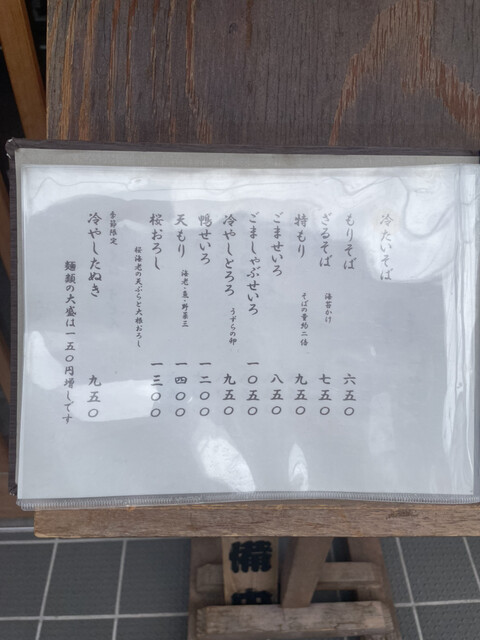 冷たいそば
もりそば 六五〇
ざるそば 海苔かけ 七五〇
特もり そばの量約二倍 九五〇
ごませいろ 八五〇
ごましゃぶせいろ 一〇五〇
冷やしとろろ うずらの卵 九五〇
鴨せいろ 一二〇〇
天もり 海老・魚・野菜三 一四〇〇
桜おろし 一三〇〇
桜海老の天ぷらと大根おろし
季節限定
冷やしたぬき 九五〇
麺類の大盛は一五〇円増しです
備中